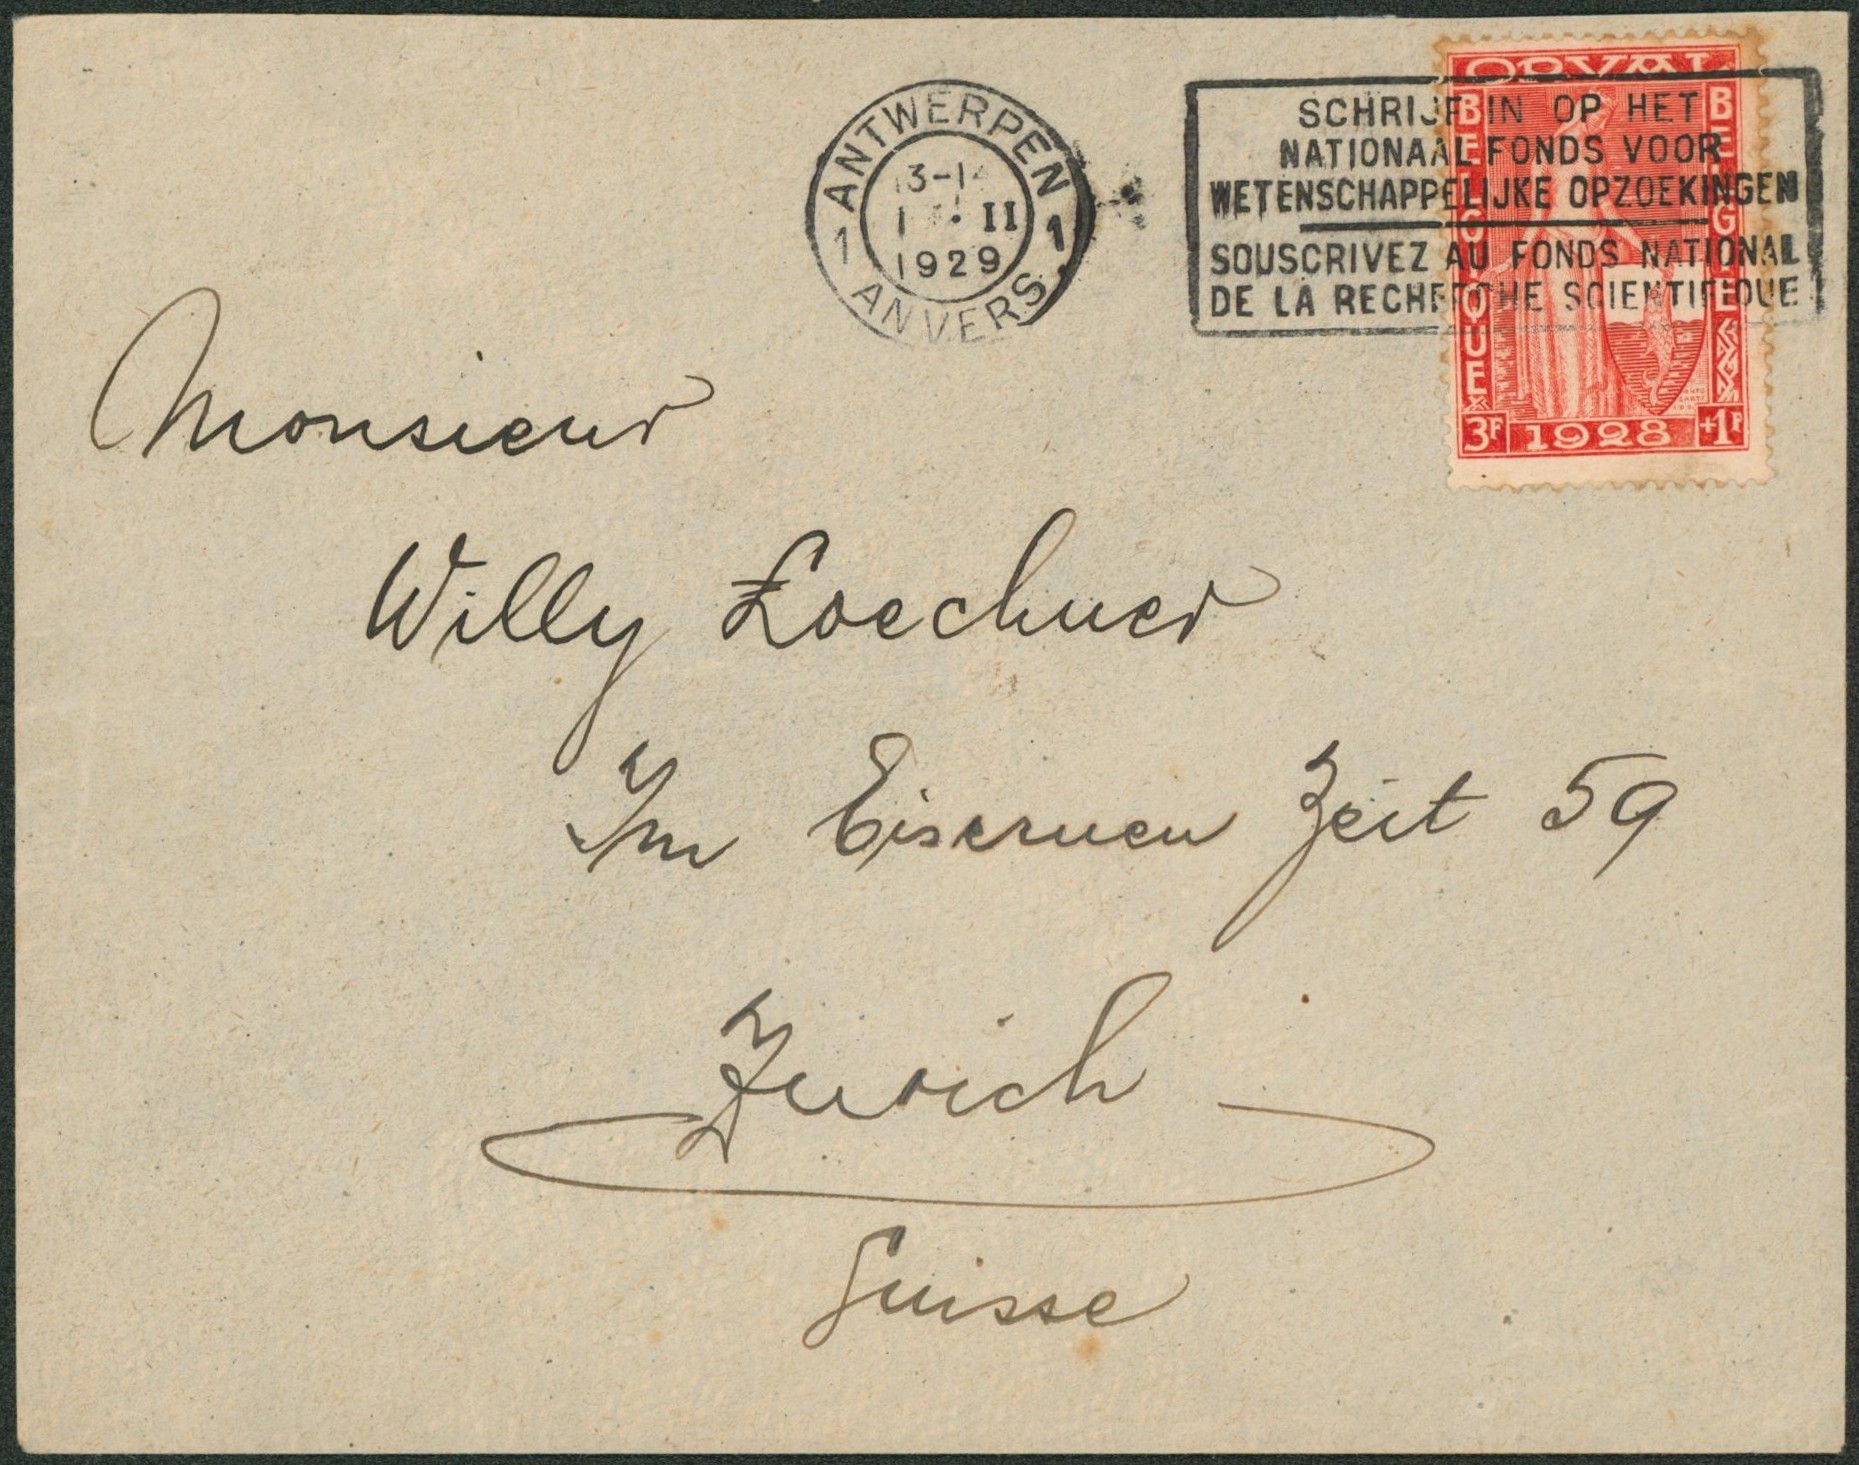 ANTWERPEN
13-14
1 II
1929
1 1
ANVERS
SCHRIJF IN OP HET
NATIONAAL FONDS VOOR
WETENSCHAPPELIJKE OPZOEKINGEN
SOUSCRIVEZ AU FONDS NATIONAL
DE LA RECHERCHE SCIENTIFIQUE
ORVAL
BELGIQUE
BELGIE
3F 1928 +1F
Monsieur
Willy Loechner
Im Eisernen Zeit 59
Zurich
Suisse